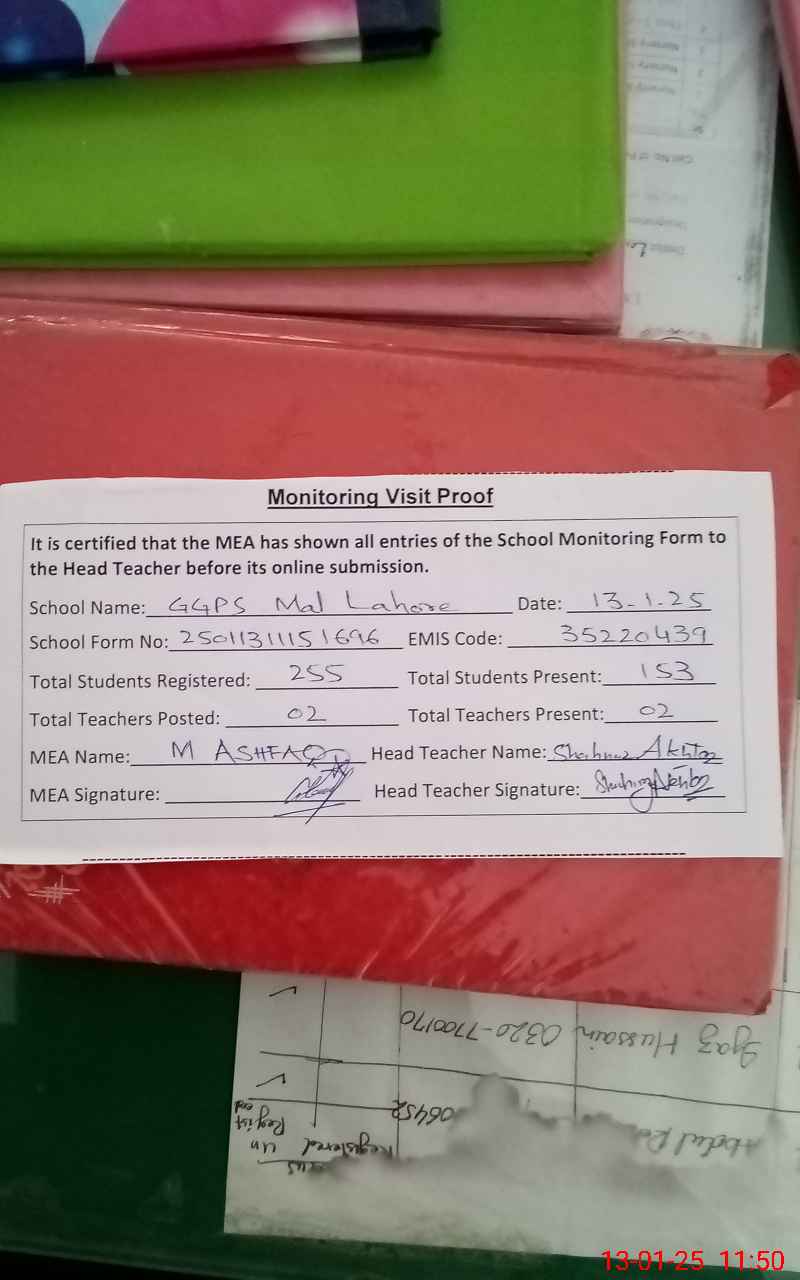 Monitoring Visit Proof
It is certified that the MEA has shown all entries of the School Monitoring Form to
the Head Teacher before its online submission.
School Name: GGPS Mal Lahore Date: 13-1.25
School Form No: 25011311151696 EMIS Code: 35220439
Total Students Registered: 255 Total Students Present: 153
Total Teachers Posted: 02 Total Teachers Present: 02
MEA Name: M ASHFAQ Head Teacher Name: Shahnaz Akhtar
MEA Signature: Head Teacher Signature: Shahnaz Akhtar
Ijaz Hussain 0320-7700170
06452
Abdul
Registered Un
Regist
13-01-25 11:50